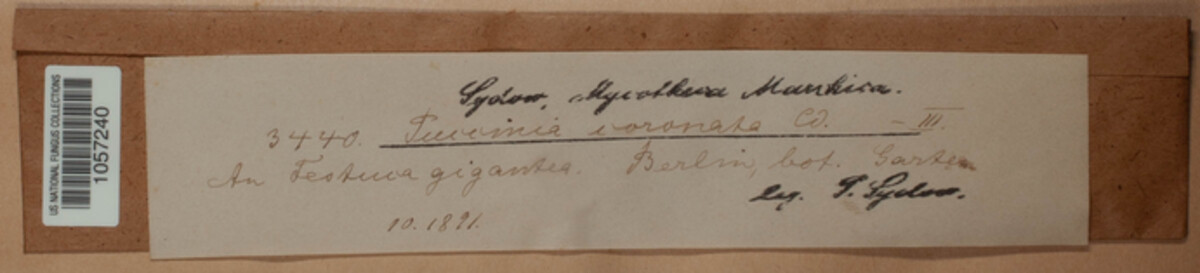 US NATIONAL FUNGUS COLLECTIONS
1057240
Sydow, Mycotheca Marchica.
3440. Puccinia coronata Cd. – III.
An Festuca gigantea. Berlin, bot. Garten
leg. P. Sydow.
10. 1891.